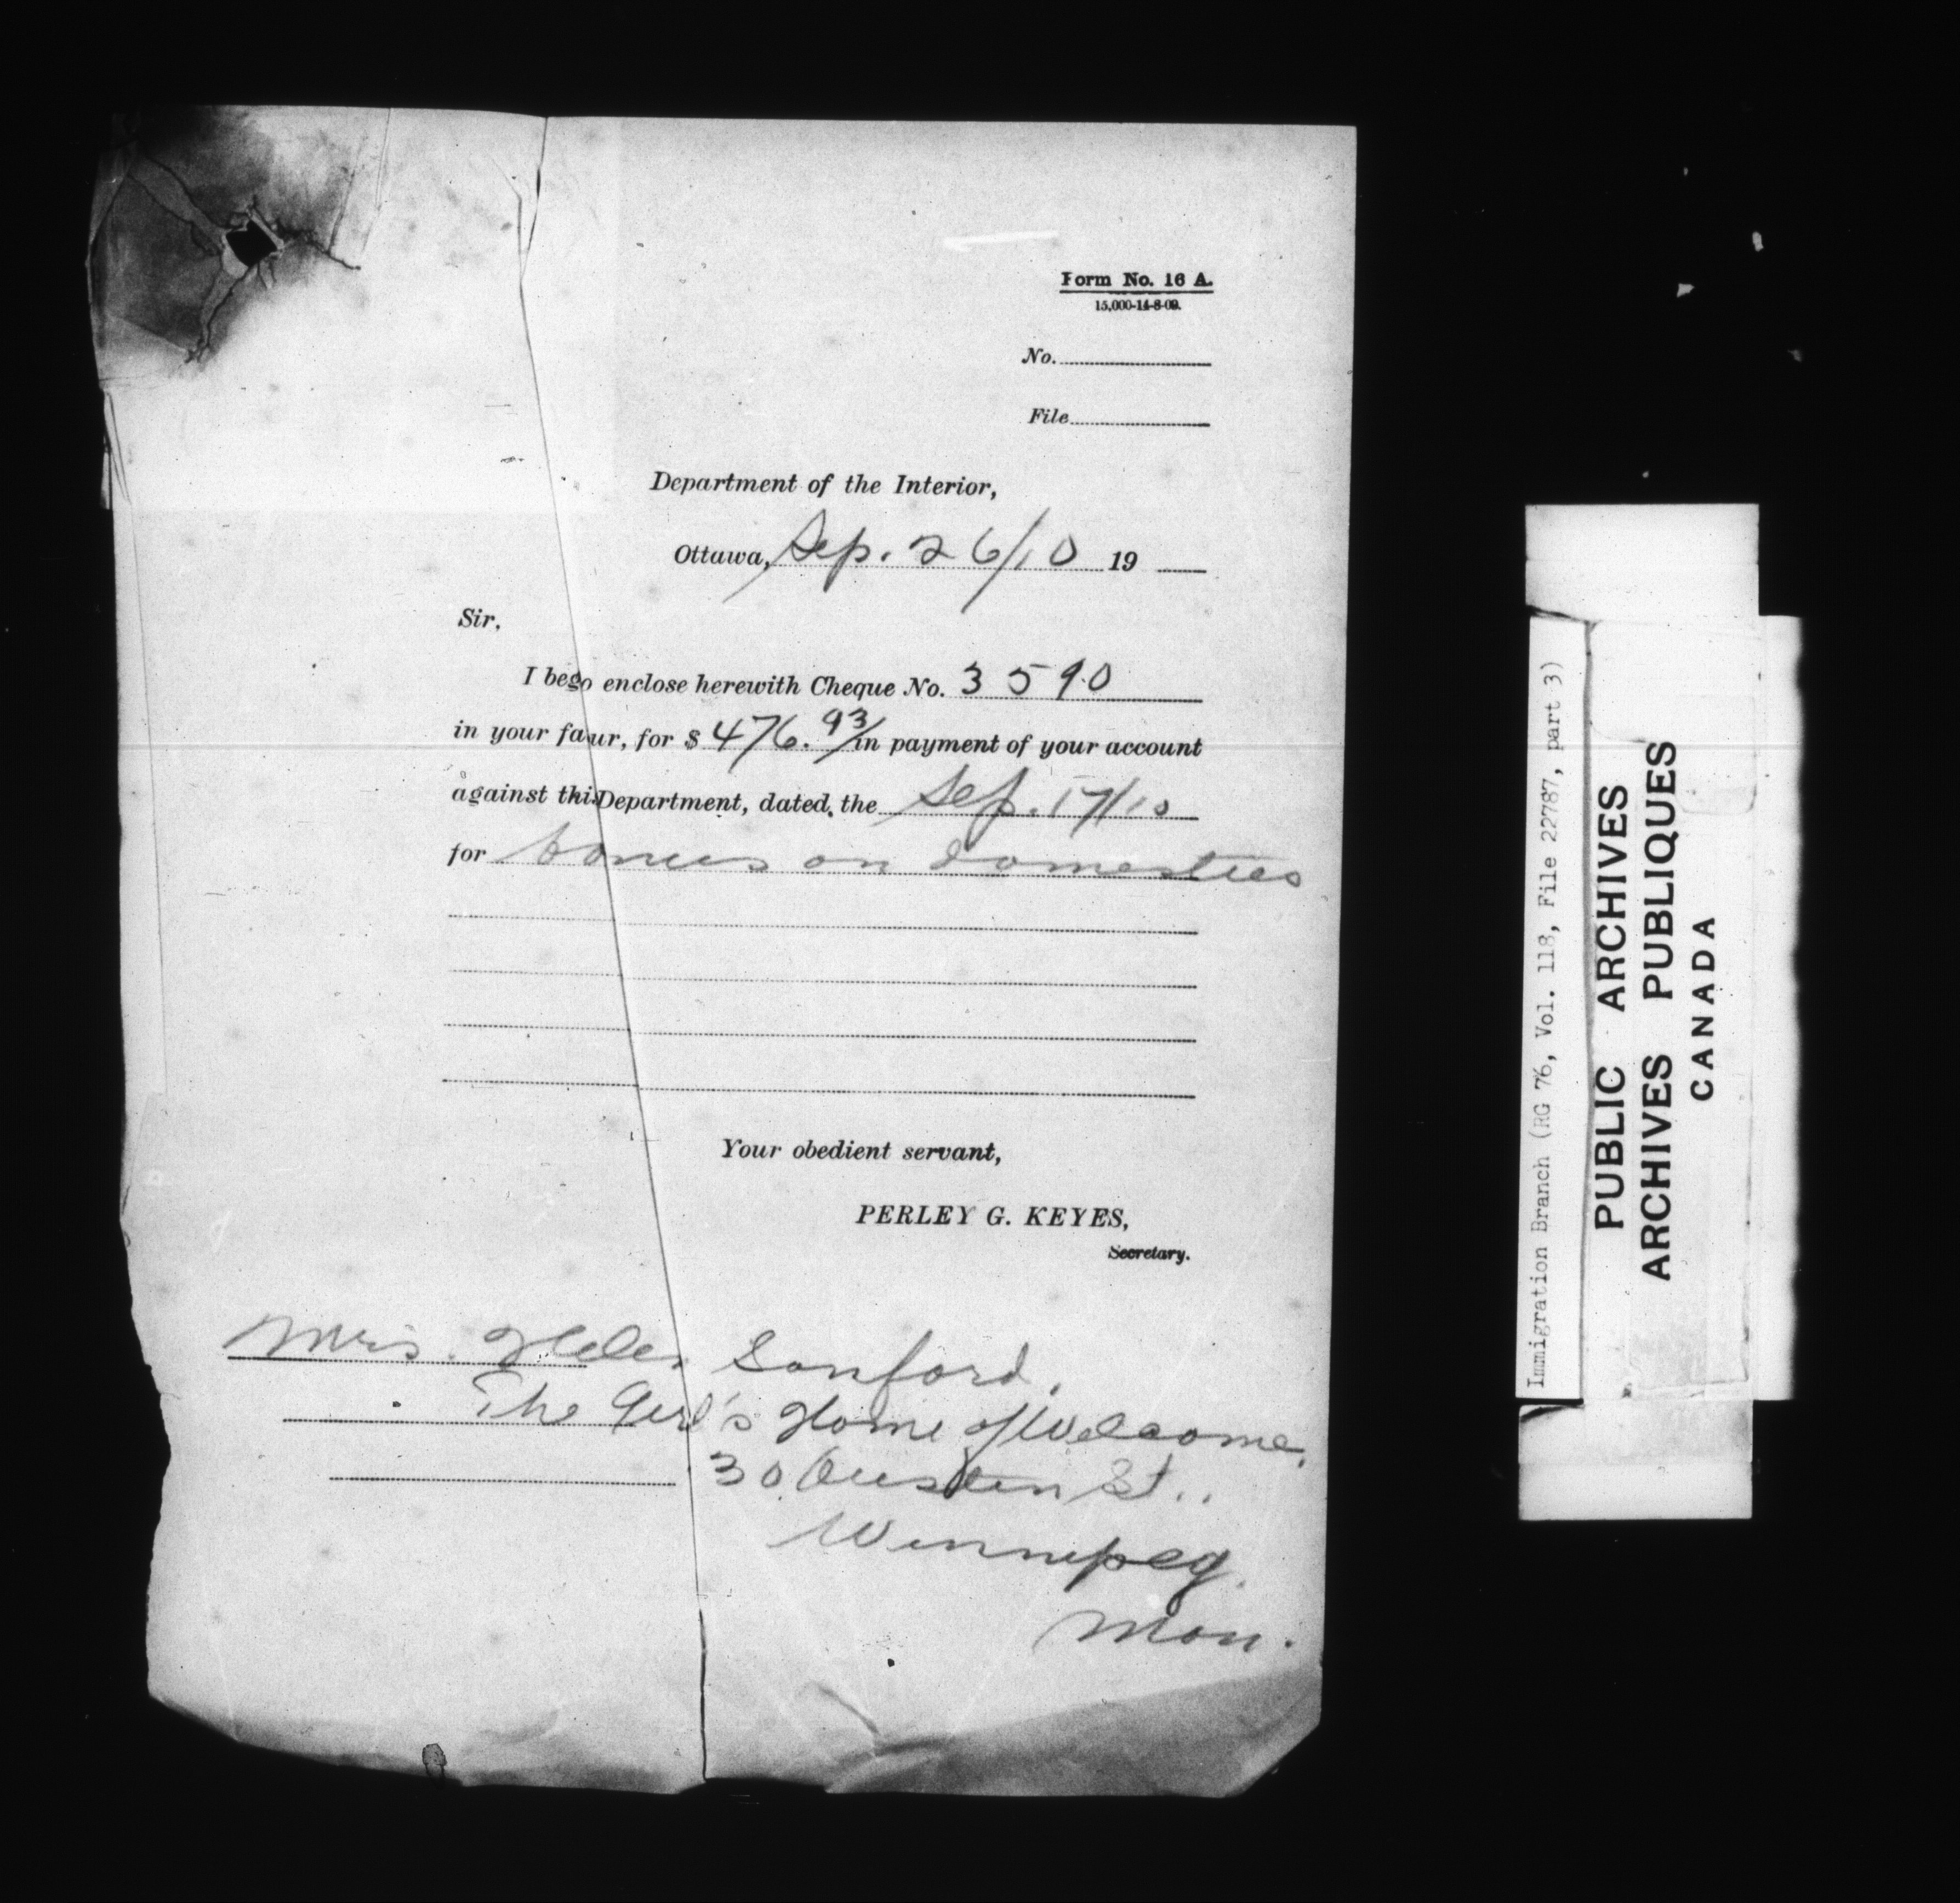 Form No. 16 A.
15,000-14-8-09.
No.
File
Department of the Interior,
Ottawa, Sep. 26/10 19
Sir,
I beg o enclose herewith Cheque No. 3590
in your fa ur, for $ 476.93/ in payment of your account
against this Department, dated the Sep. 17/10
for bonus on domestics
Your obedient servant,
PERLEY G. KEYES,
Secretary.
Mrs. Helen Sanford,
The Girl's Home of Welcome,
30 Austin St..
Winnipeg.
Man.
Immigration Branch (RG 76, Vol. 118, File 22787, part 3)
PUBLIC ARCHIVES
ARCHIVES PUBLIQUES
CANADA